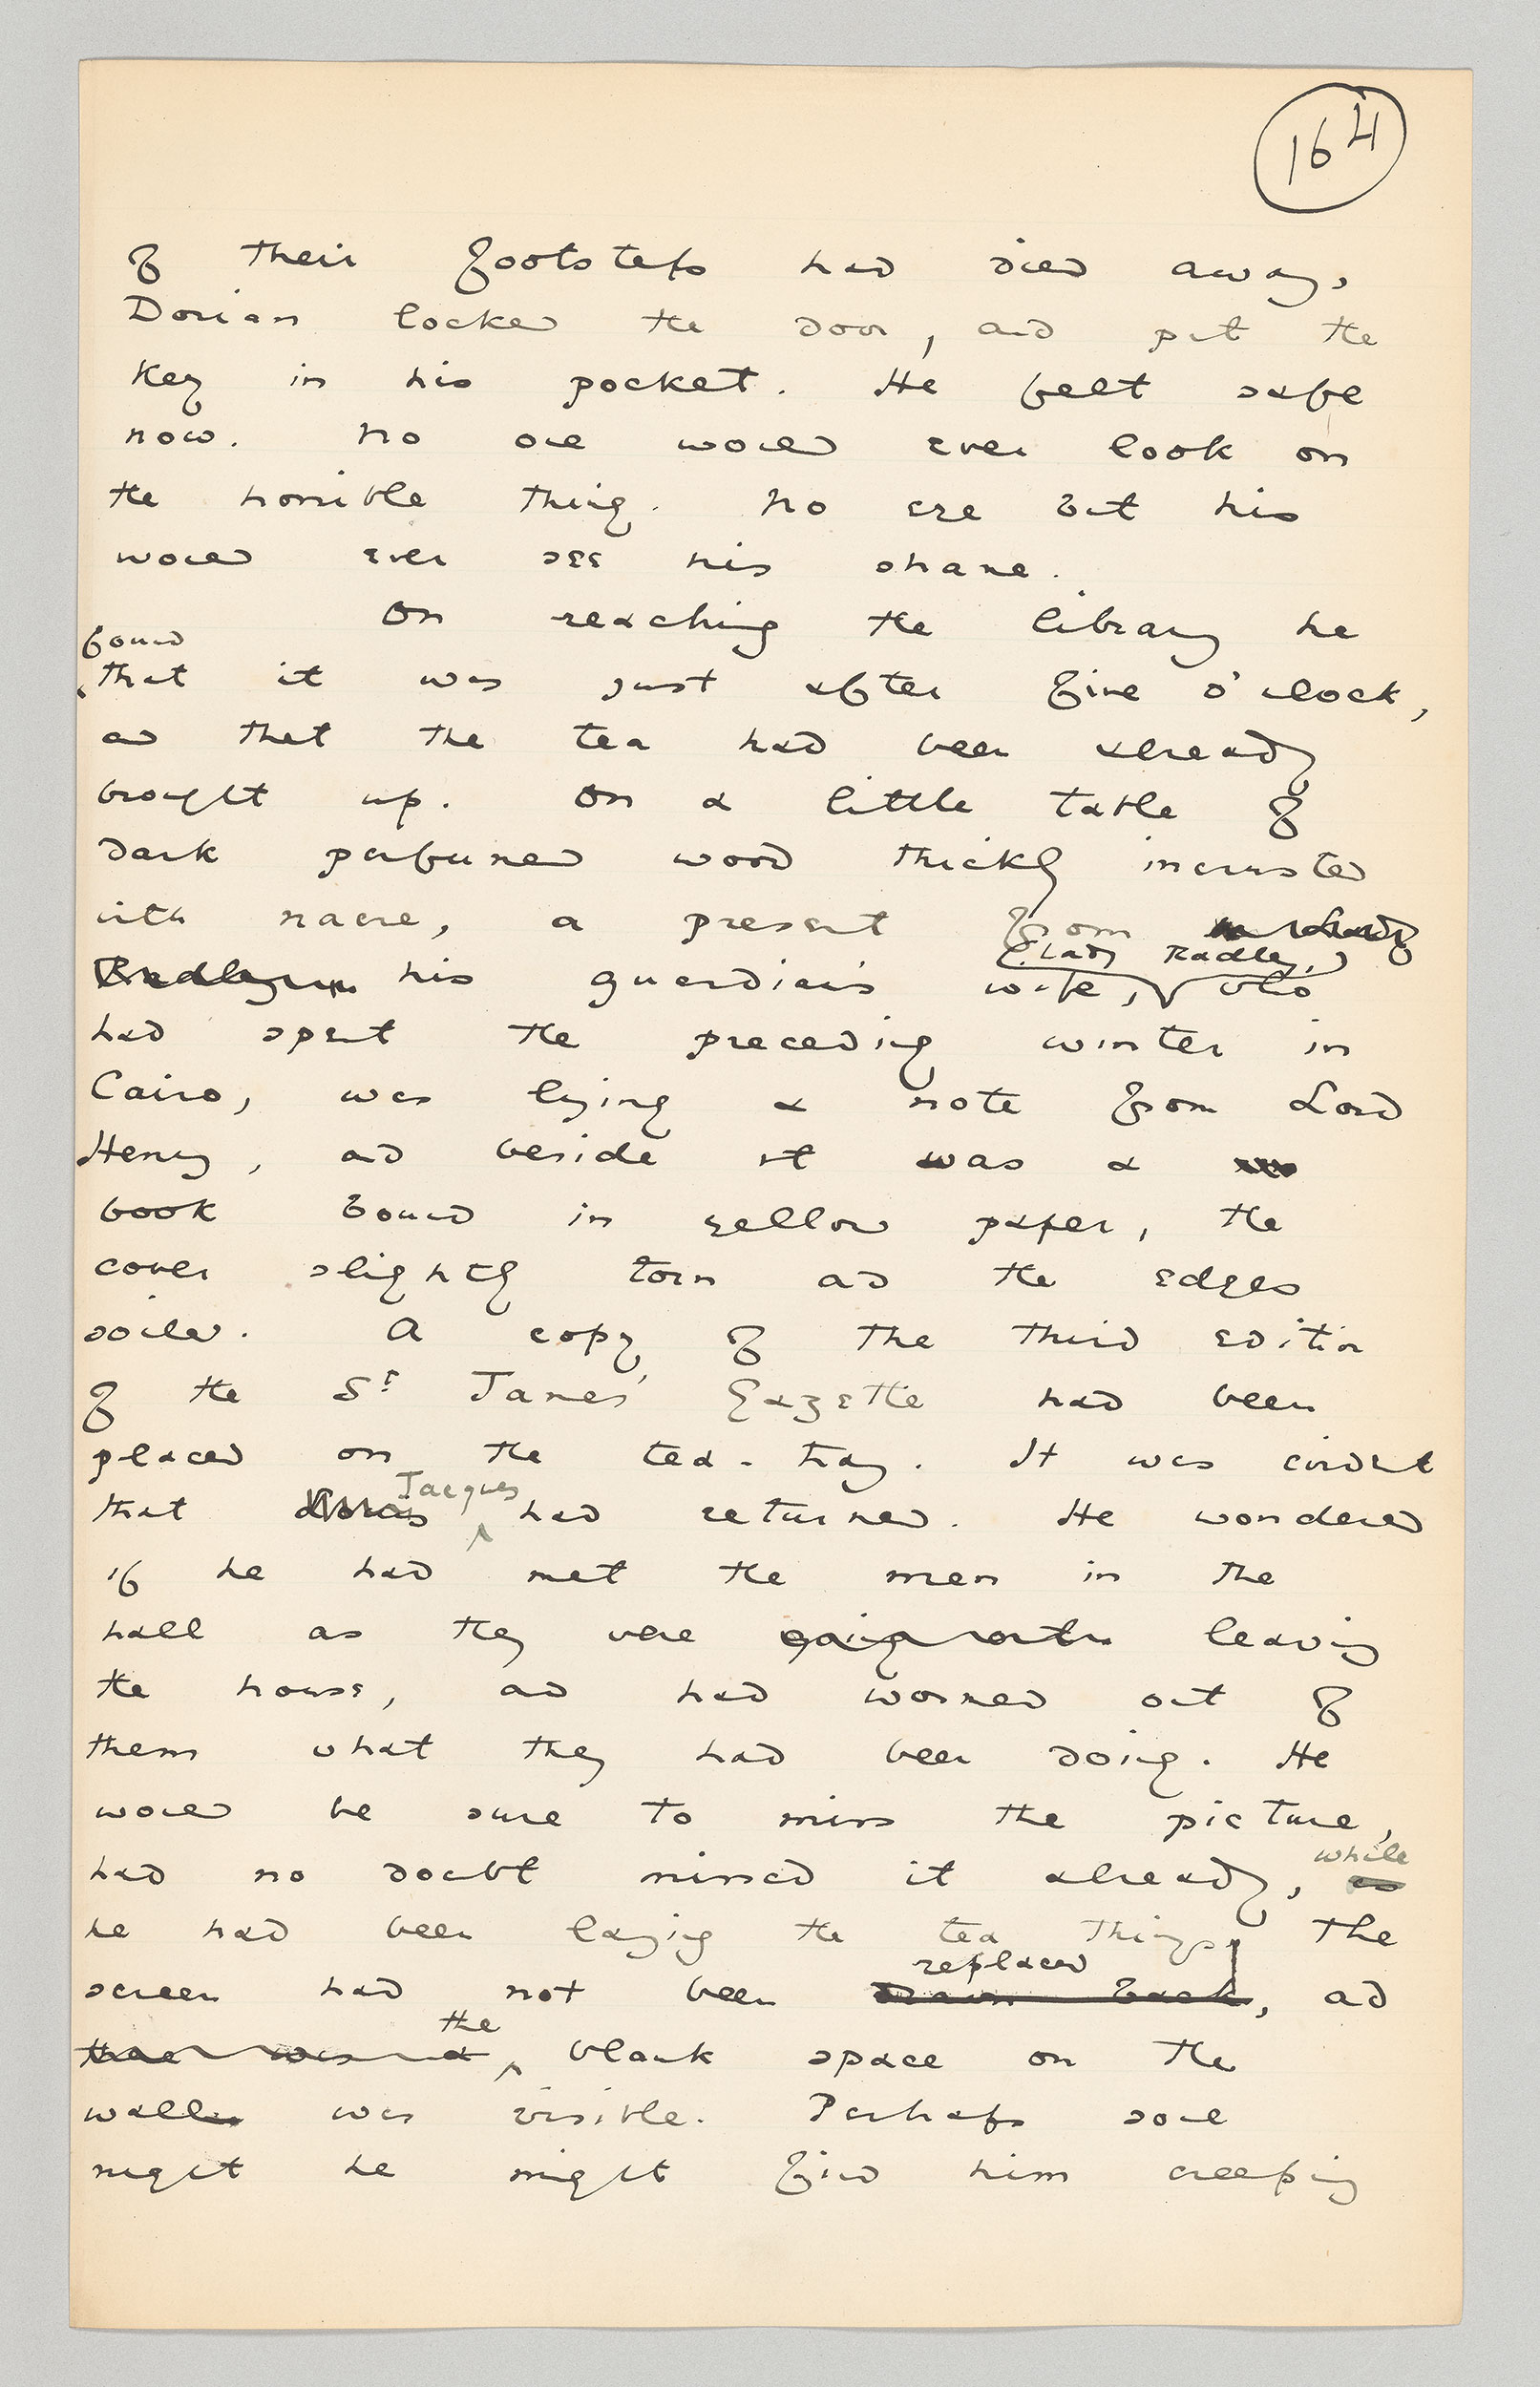 164
of their footsteps had died away,
Dorian locked the door, and put the
key in his pocket. He felt safe
now. No one would ever look on
the horrible thing. No eye but his
would ever see his shame.
On reaching the library he
found
that it was just after five o'clock,
and that the tea had been already
brought up. On a little table of
dark perfumed wood thickly incrusted
with nacre, a present from Lady
(Lady Radley,)
Radley his guardian's wife, who
had spent the preceding winter in
Cairo, was lying a note from Lord
Henry, and beside it was a
book bound in yellow paper, the
cover slightly torn and the edges
soiled. A copy of the third edition
of the St James' Gazette had been
placed on the tea-tray. It was evident
Jacques
that had returned. He wondered
if he had met the men in the
hall as they were going out leaving
the house, and had wormed out of
them what they had been doing. He
would be sure to miss the picture,
while
had no doubt missed it already, as
he had been laying the tea things. The
replaced
screen had not been drawn back, and
the
there was a blank space on the
wall was visible. Perhaps some
night he might find him creeping